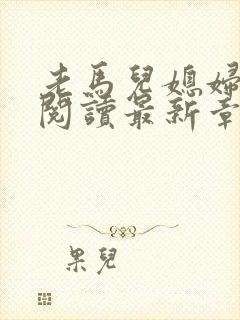 老馬兒媳婦
閱讀最新章
果兒